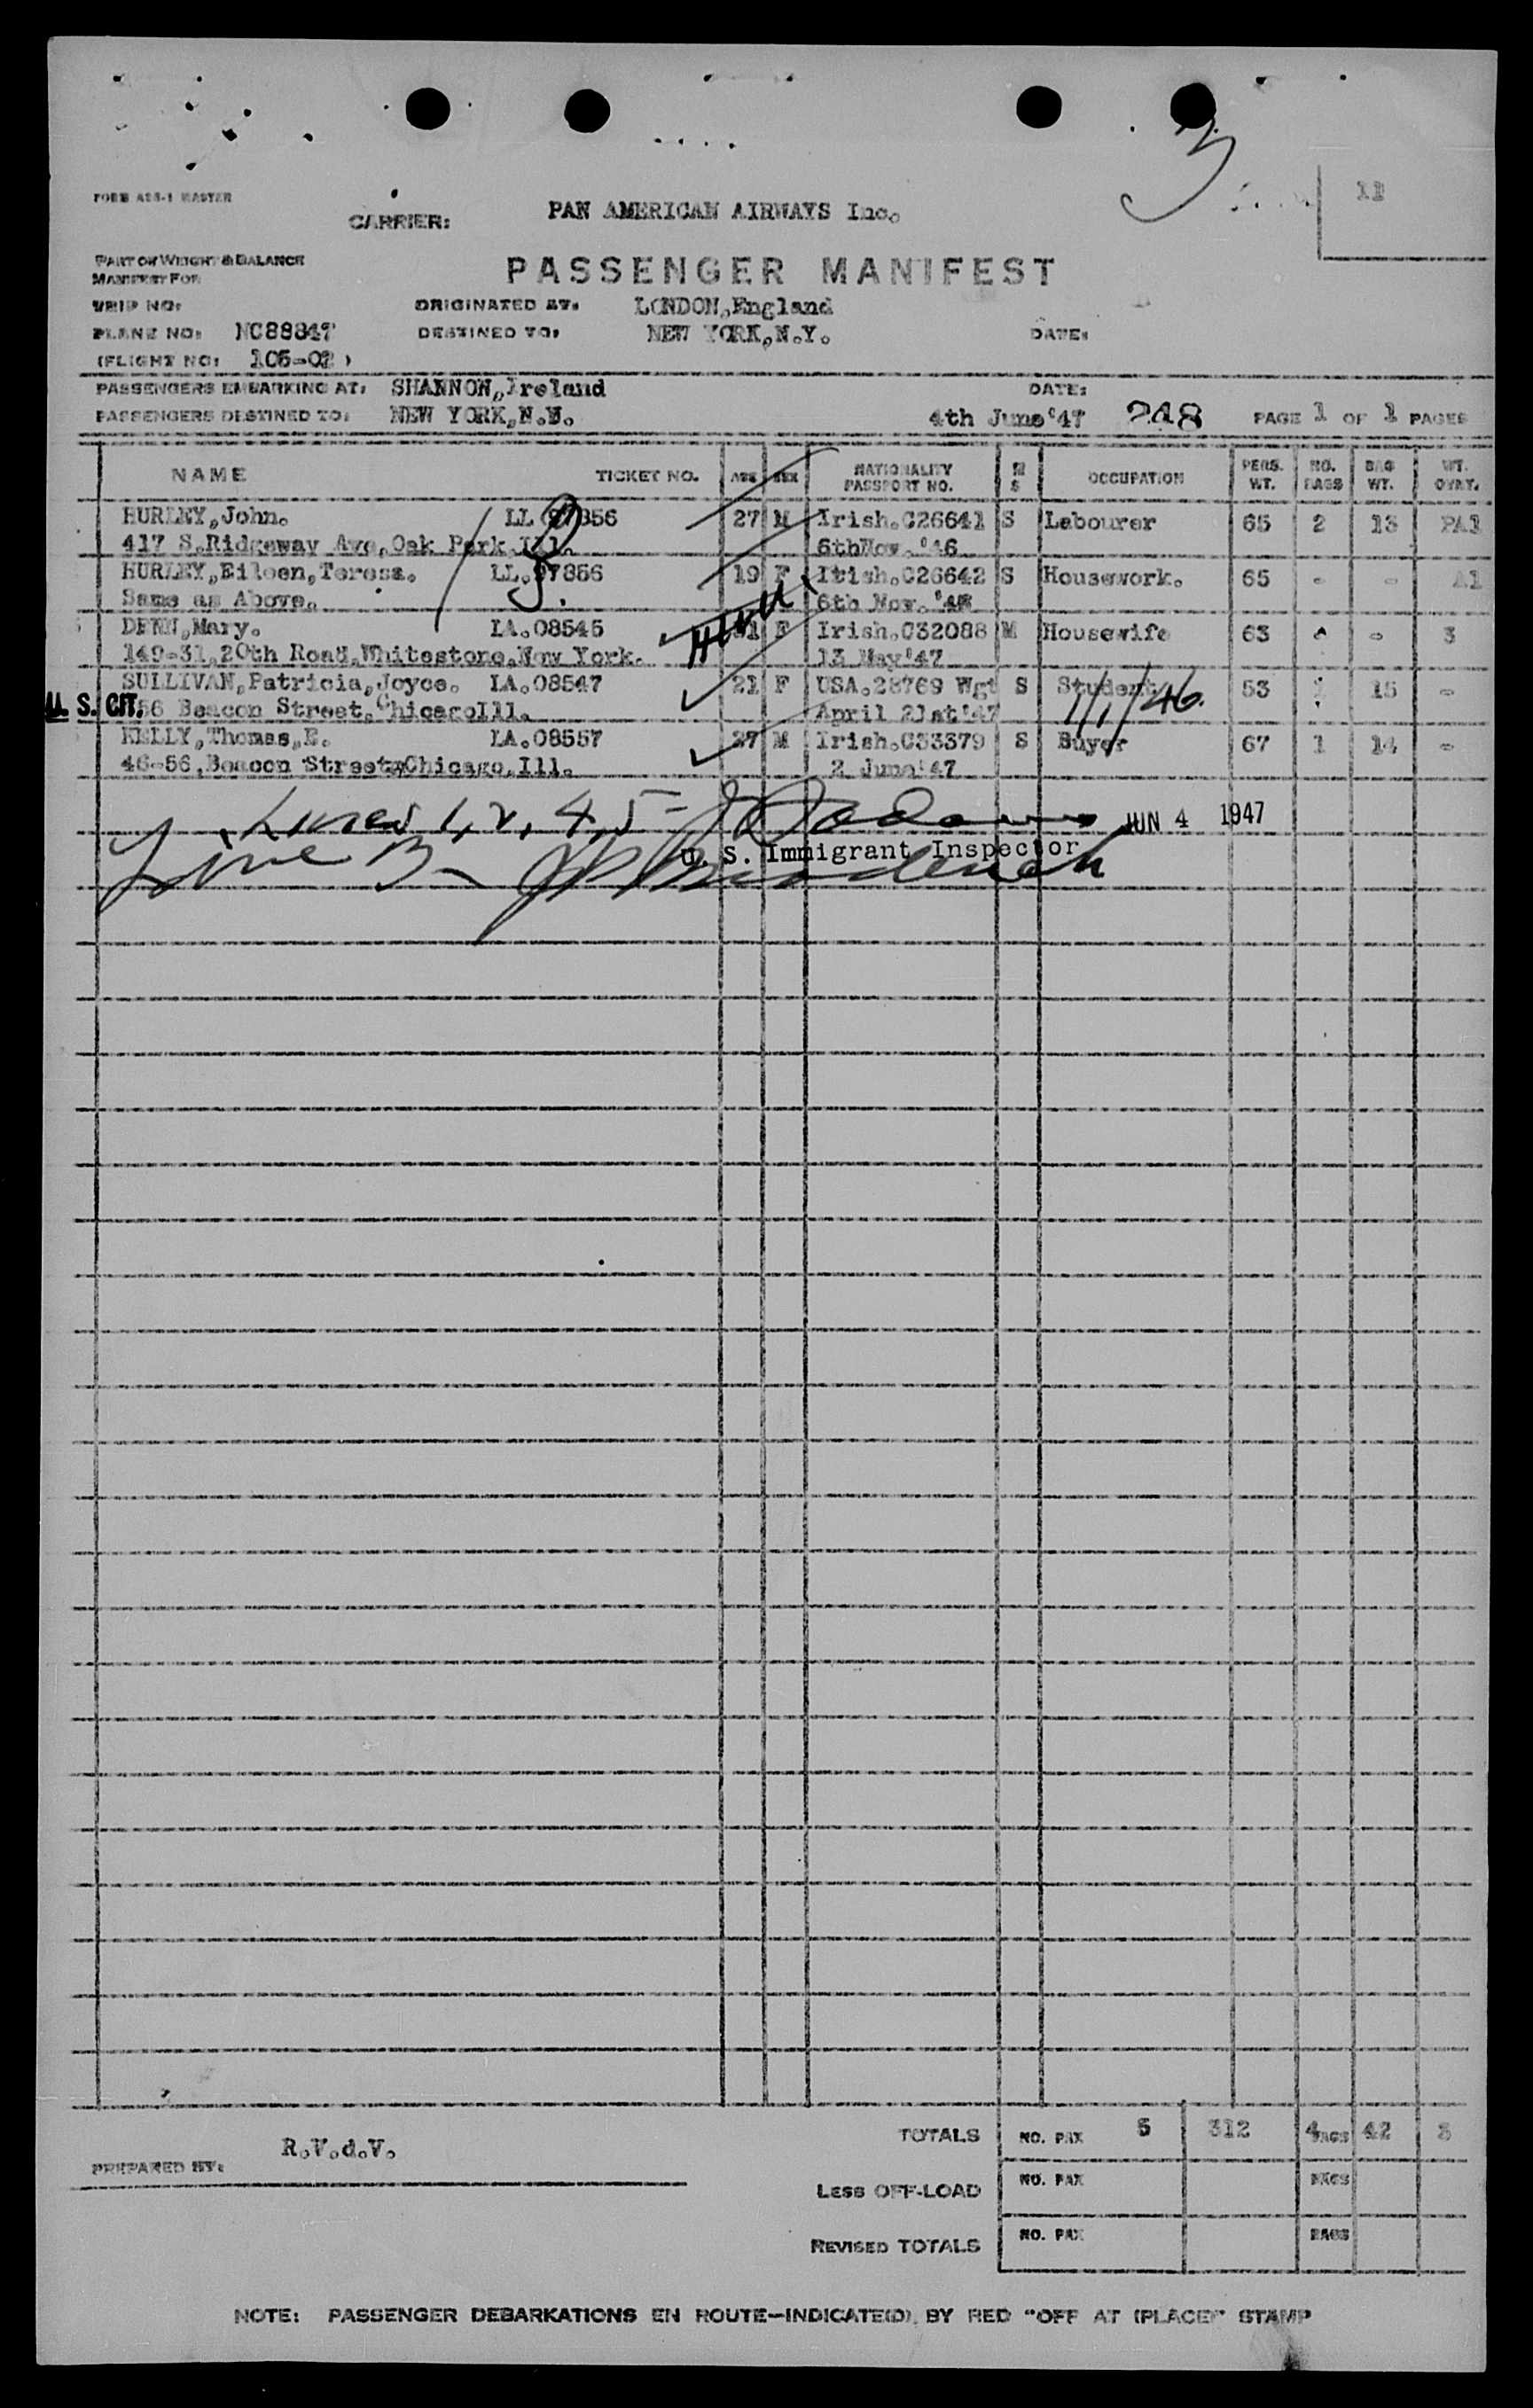 3
11
FORM ASB-1 MASTER
CARRIER: PAN AMERICAN AIRWAYS Inc.
PART OF WEIGHT & BALANCE
MANIFEST FOR
PASSENGER MANIFEST
TRIP NO: ORIGINATED AT: LONDON,England
PLANE NO: NC88847 DESTINED TO: NEW YORK,N.Y. DATE:
(FLIGHT NO: 105-02)
PASSENGERS EMBARKING AT: SHANNON,Ireland DATE:
PASSENGERS DESTINED TO: NEW YORK,N.Y. 4th June'47 248 PAGE 1 OF 1 PAGES
NAME TICKET NO. AGE SEX NATIONALITY PASSPORT NO. M S OCCUPATION PERS. WT. NO. BAGS BAG WT. WT. OVRT.
HURLEY,John. LL 97856 27 M Irish.C26641 S Labourer 65 2 13 PA1
417 S.Ridgeway Ave,Oak Park Ill. 6thNov.'46
HURLEY,Eileen,Teresa. LL.97856 19 F Irish.C26642 S Housework. 65 - - A1
Same as Above. 6th Nov.'46
Mary. LA.08545 F Irish.C32088 M Housewife 63 - - 3
149-31,20th Road,Whitestone,New York. 13 May'47
SULLIVAN,Patricia,Joyce. LA.08547 21 F USA.28769 Wgt S Student 53 1 15 -
U. S. CIT. 56 Beacon Street,ChicagoIll. April 21st'47 1/1/46.
KELLY,Thomas,E. LA.08557 27 M Irish.C33379 S Buyer 67 1 14 -
46-56,Beacon Street,Chicago,Ill. 2 June'47
Lines 1, 2, 4, 5 - JUN 4 1947
U. S. Immigrant Inspector
Line 3 -
TOTALS NO. PAX 5 312 4 BAGS 42 3
R.V.d.V.
PREPARED BY:
LESS OFF-LOAD NO. PAX BAGS
REVISED TOTALS NO. PAX BAGS
NOTE: PASSENGER DEBARKATIONS EN ROUTE—INDICATE(D) BY RED "OFF AT (PLACE)" STAMP